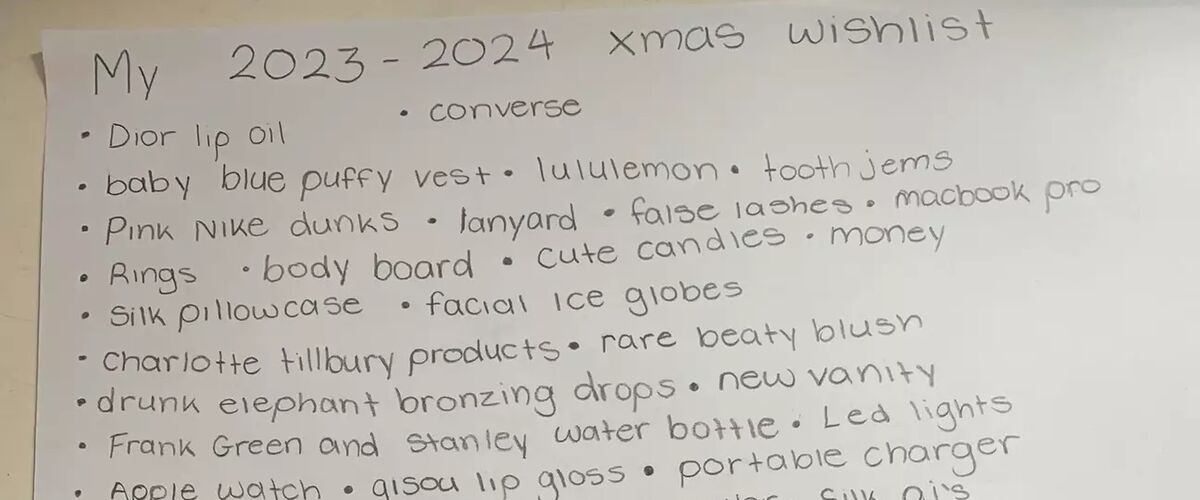 My 2023-2024 xmas wishlist
• converse
• Dior lip oil
• baby blue puffy vest • lululemon • tooth jems
• Pink Nike dunks • lanyard • false lashes • macbook pro
• Rings • body board • cute candles • money
• Silk pillowcase • facial ice globes
• Charlotte tillbury products • rare beaty blush
• drunk elephant bronzing drops • new vanity
• Frank Green and Stanley water bottle • Led lights
• Apple watch • gisou lip gloss • portable charger
silk pj's